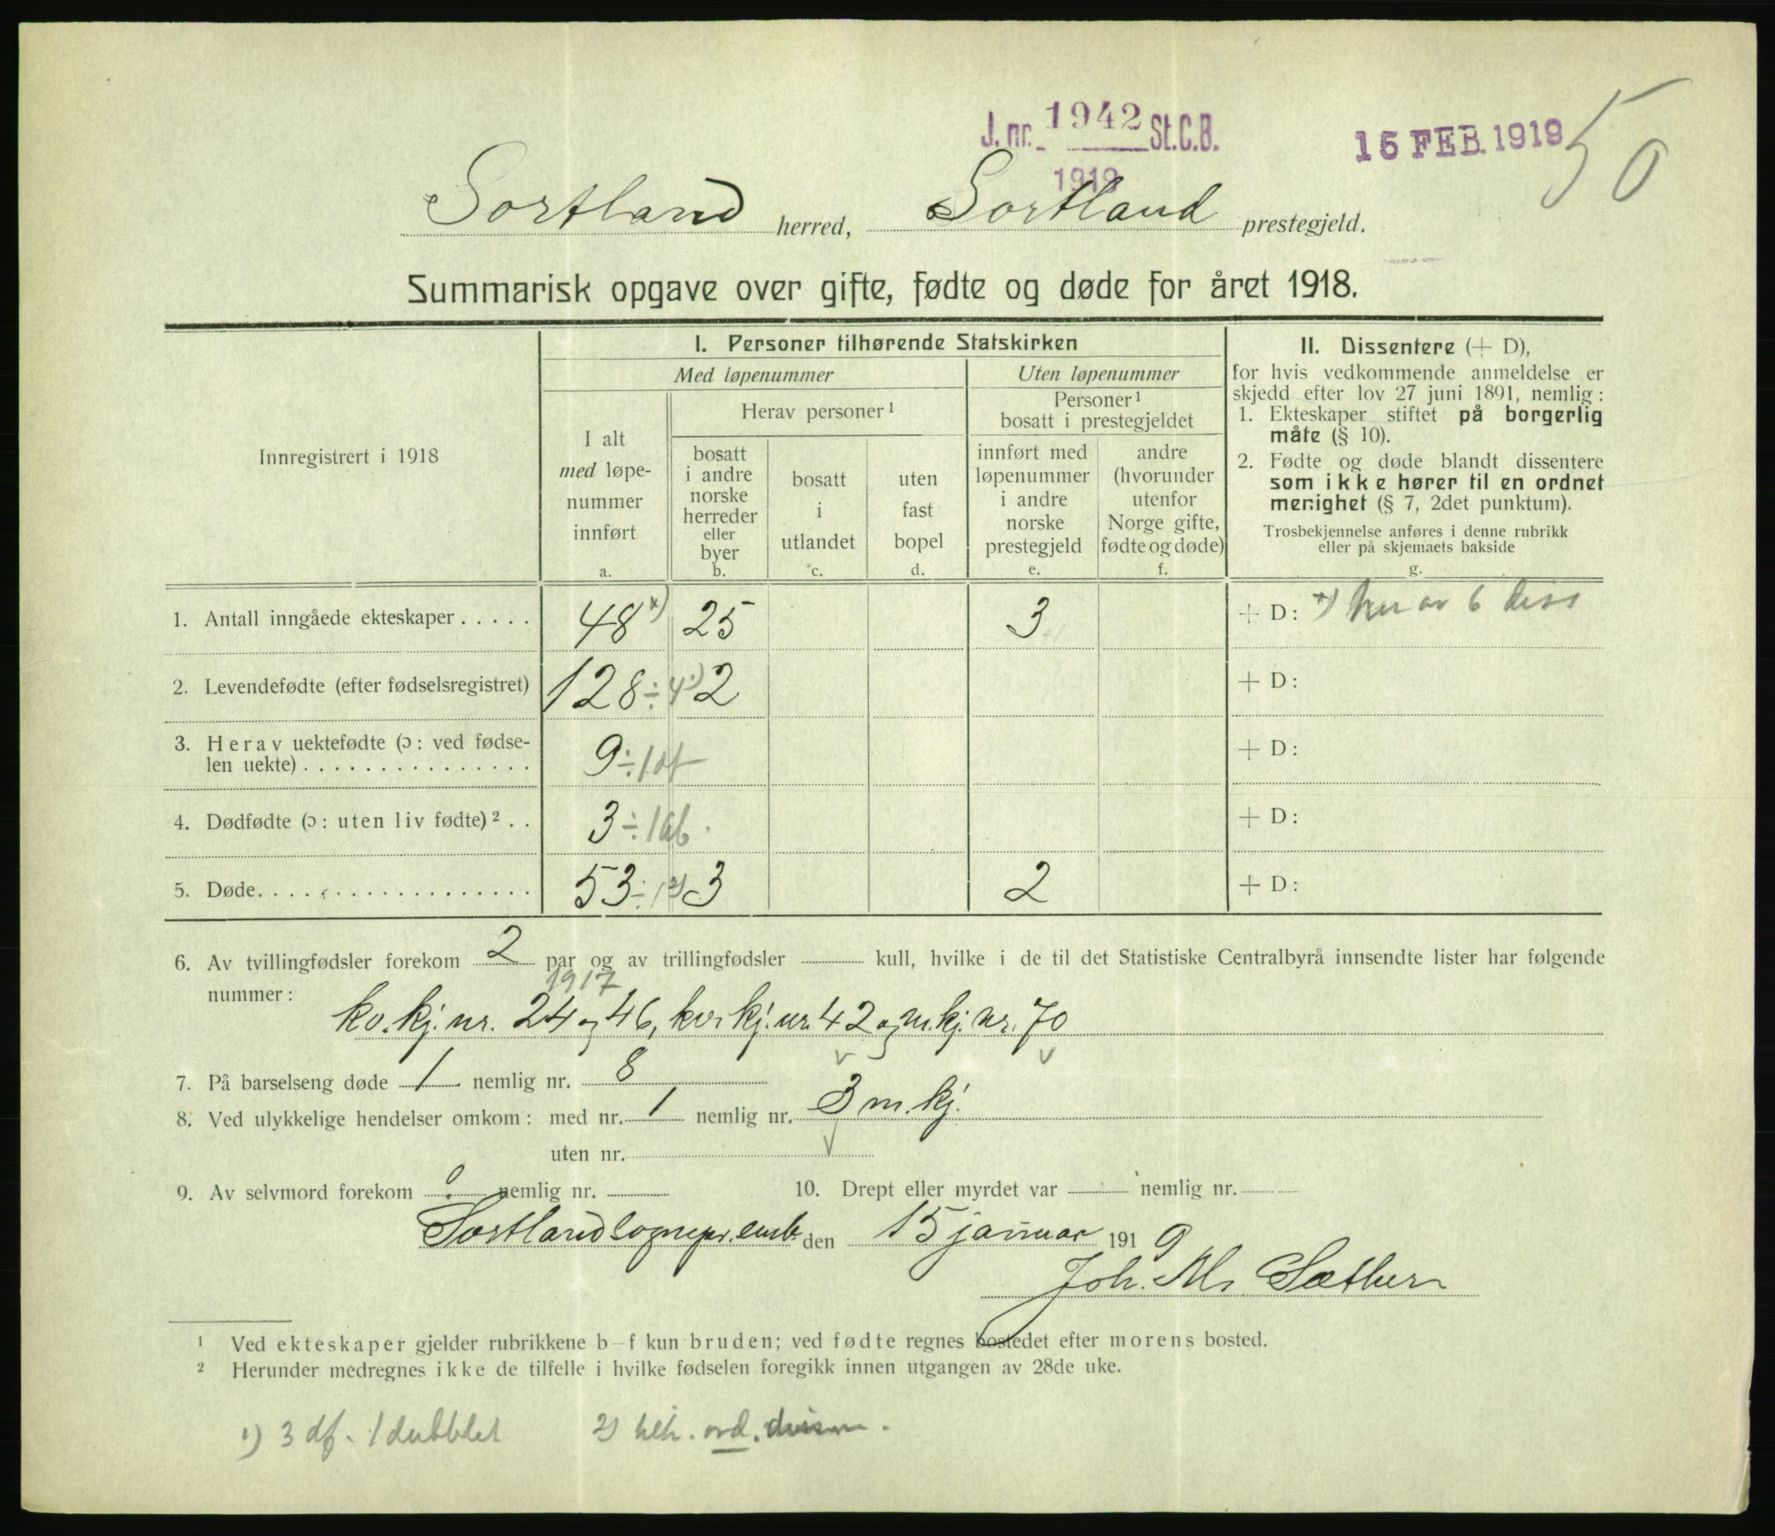 J. nr. 1942 St.C.B.
1919
15 FEB. 1919
50
Sortland herred, Sortland prestegjeld.
Summarisk opgave over gifte, fødte og døde for året 1918.
Innregistrert i 1918
I. Personer tilhørende Statskirken
Med løpenummer
Uten løpenummer
I alt
med løpe-
nummer
innført
a.
Herav personer ¹
bosatt
i andre
norske
herreder
eller
byer
b.
bosatt
i
utlandet
c.
uten
fast
bopel
d.
Personer ¹
bosatt i prestegjeldet
innført med
løpenummer
i andre
norske
prestegjeld
e.
andre
(hvorunder
utenfor
Norge gifte,
fødte og døde)
f.
II. Dissentere (+ D),
for hvis vedkommende anmeldelse er
skjedd efter lov 27 juni 1891, nemlig:
1. Ekteskaper stiftet på borgerlig
måte (§ 10).
2. Fødte og døde blandt dissentere
som ikke hører til en ordnet
menighet (§ 7, 2det punktum).
Trosbekjennelse anføres i denne rubrikk
eller på skjemaets bakside
g.
1. Antall inngåede ekteskaper . . . . . 48 x) 25 3 + D: x) herav 6 diss
2. Levendefødte (efter fødselsregistret) 128 ÷ 4 ¹) 2 + D:
3. Herav uektefødte (ɔ: ved fødse-
len uekte) . . . . . . . . . . . . . . . 9 ÷ 1 df + D:
4. Dødfødte (ɔ: uten liv fødte) ² . . 3 ÷ 1 ab. + D:
5. Døde. . . . . . . . . . . . . . . . . . 53 ÷ 1 2) 3 2 + D:
6. Av tvillingfødsler forekom 2 par og av trillingfødsler kull, hvilke i de til det Statistiske Centralbyrå innsendte lister har følgende
nummer:
1917
kv. kj. nr. 24 og 46, kv. kj. nr. 42 og m. kj. nr. 70
7. På barselseng døde 1 nemlig nr. 8
8. Ved ulykkelige hendelser omkom: med nr. 1 nemlig nr. 3 m. kj.
uten nr.
9. Av selvmord forekom 0 nemlig nr. 10. Drept eller myrdet var nemlig nr.
Sortland sognepr. emb. den 15 januar 1919
Joh. Ms. Sæther
¹ Ved ekteskaper gjelder rubrikkene b–f kun bruden; ved fødte regnes bostedet efter morens bosted.
² Herunder medregnes ikke de tilfelle i hvilke fødselen foregikk innen utgangen av 28de uke.
¹) 3 df. 1 dubblet 2)